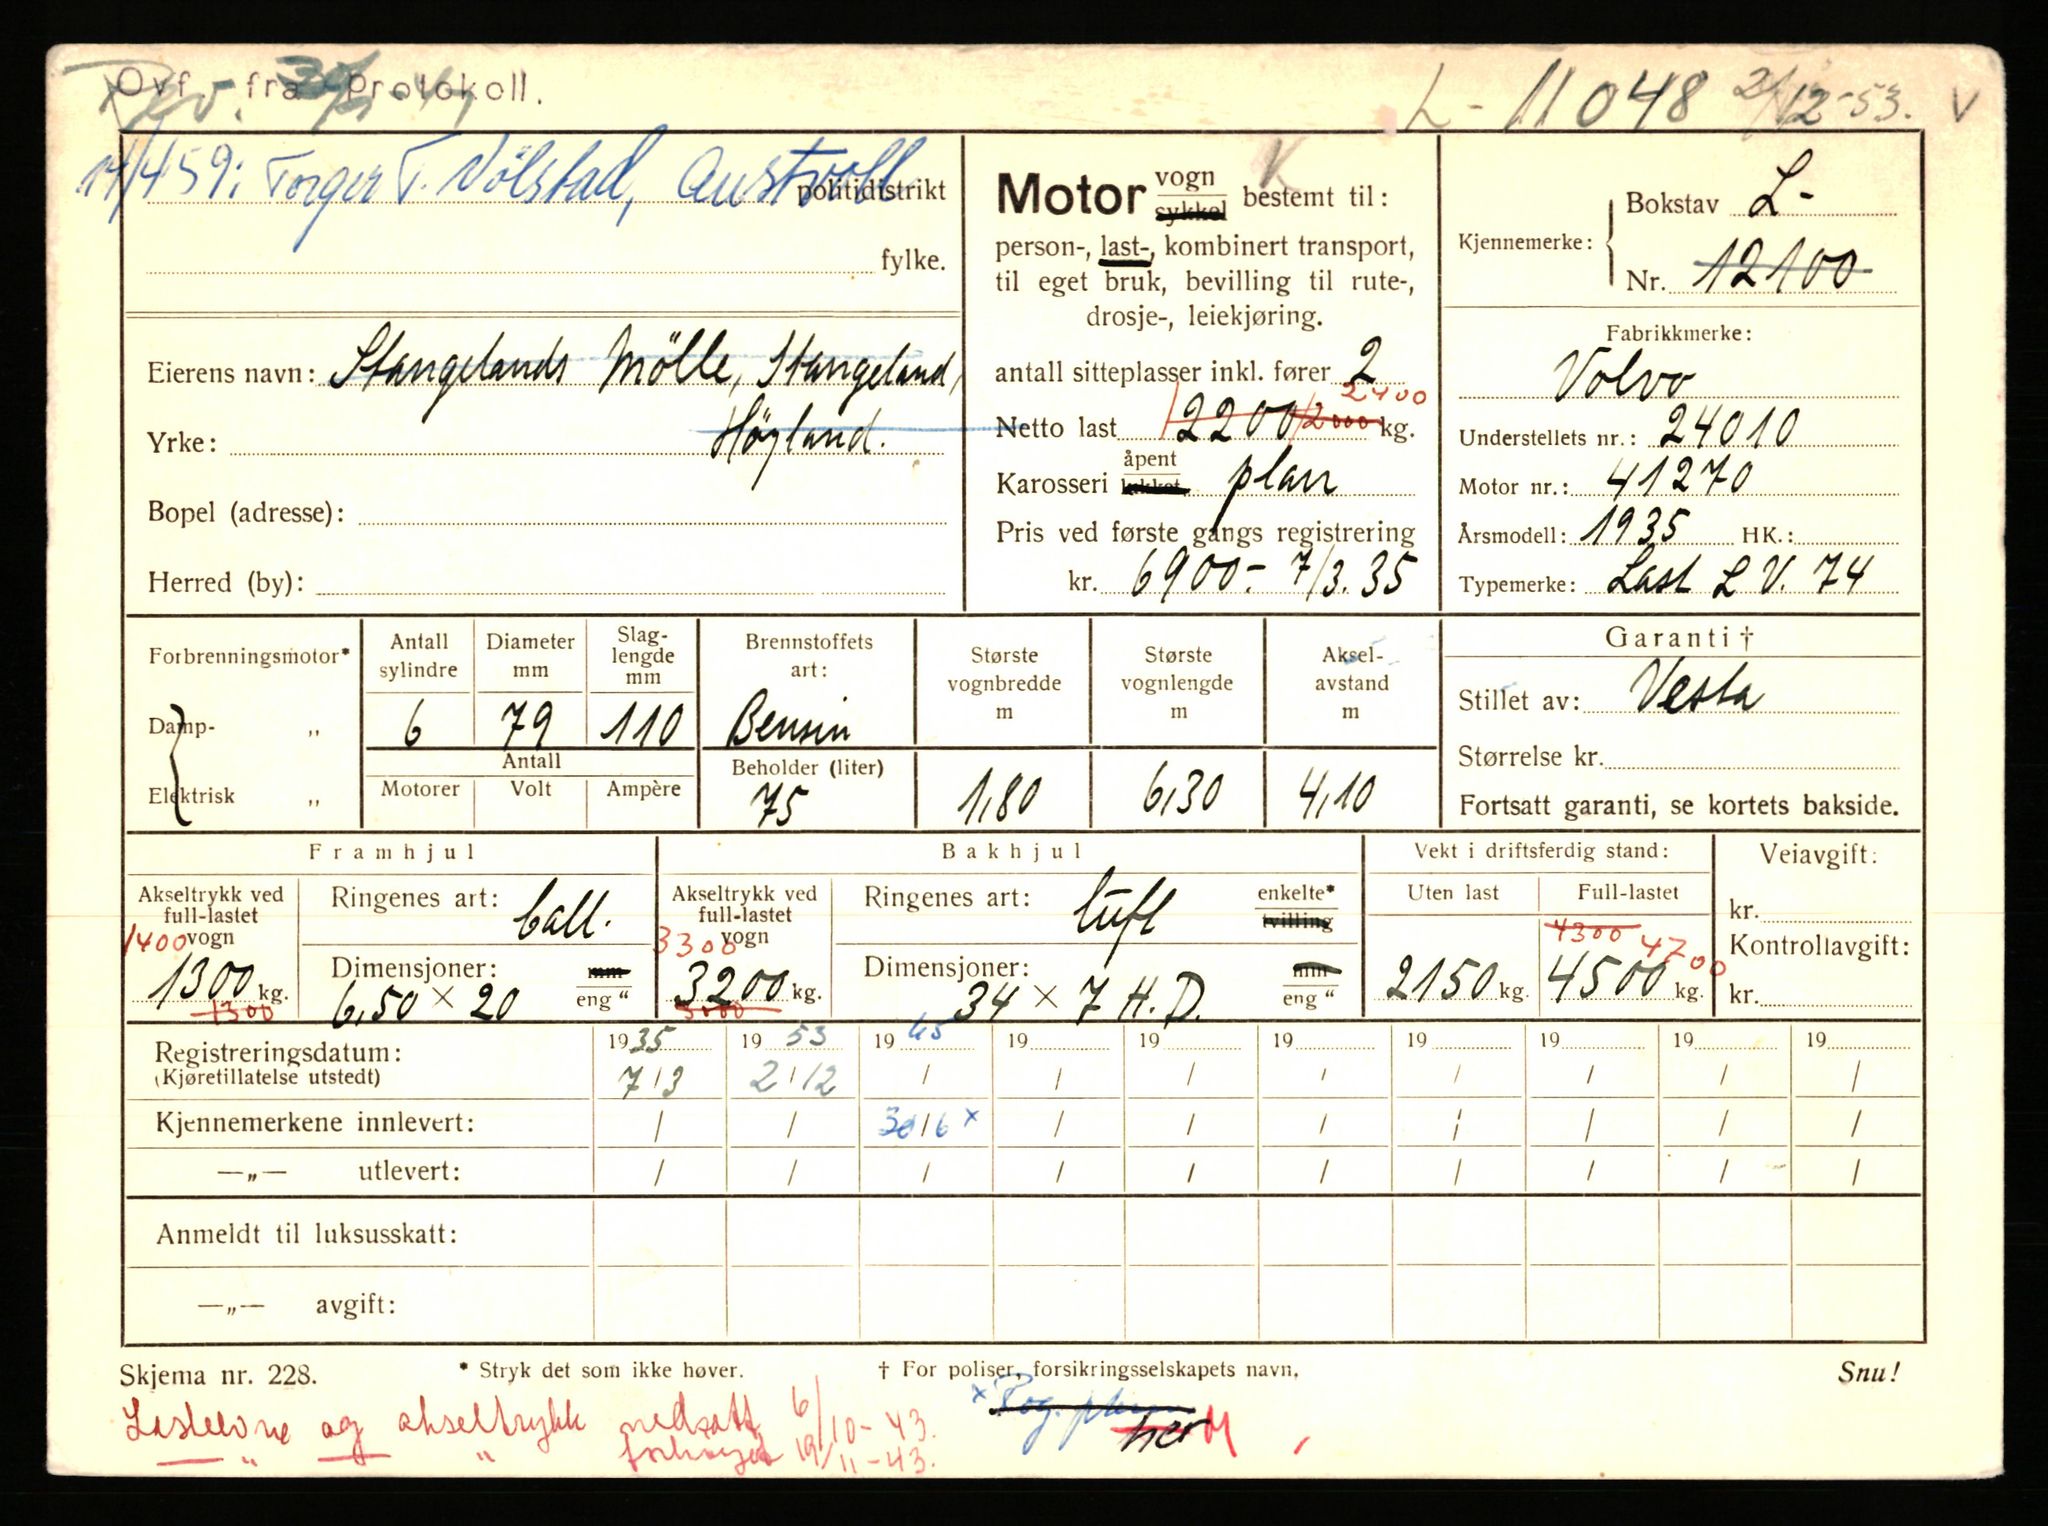 Ovf. fra protokoll.
Rev.
L - 11048 2/12-53. V
14/459: Torger T. Nölstad, Austvoll
politidistrikt
fylke.
Eierens navn: Stangelands Mölle, Stangeland,
Yrke: Höyland.
Bopel (adresse):
Herred (by):
Motor vogn sykkel bestemt til:
person-, last-, kombinert transport,
til eget bruk, bevilling til rute-,
drosje-, leiekjøring.
antall sitteplasser inkl. fører 2
2400
Netto last 2200 2000 kg.
Karosseri åpent lukket plan
Pris ved første gangs registrering
kr. 6900.- 7/3.35
Kjennemerke: Bokstav L-
Nr. 12100
Fabrikkmerke:
Volvo
Understellets nr.: 24010
Motor nr.: 41270
Årsmodell: 1935 HK.:
Typemerke: Last L V. 74
Forbrenningsmotor*
Damp- „
Elektrisk „
Antall sylindre 6
Diameter mm 79
Slag-lengde mm 110
Antall
Motorer Volt Ampère
Brennstoffets art: Bensin
Beholder (liter) 75
Største vognbredde m 1,80
Største vognlengde m 6,30
Aksel-avstand m 4,10
Garanti †
Stillet av: Vesta
Størrelse kr.
Fortsatt garanti, se kortets bakside.
Framhjul
Akseltrykk ved full-lastet vogn
1400
1300 kg.
1300
Ringenes art: ball.
Dimensjoner: mm eng "
6,50 × 20
Bakhjul
Akseltrykk ved full-lastet vogn
3300
3200 kg.
3000
Ringenes art: luft enkelte* tvilling
Dimensjoner: mm eng "
34 × 7 H.D.
Vekt i driftsferdig stand:
Uten last Full-lastet
4300 4700
2150 kg. 4500 kg.
Veiavgift:
kr.
Kontrollavgift:
kr.
1935 1953 1965 19 19 19 19 19 19 19
Registreringsdatum: 7/3 2/12 / / / / / / / /
(Kjøretillatelse utstedt)
Kjennemerkene innlevert: / / 30/6 x / / / / / / /
—„— utlevert: / / / / / / / / / /
Anmeldt til luksusskatt:
—„— avgift:
Skjema nr. 228. * Stryk det som ikke høver. † For poliser, forsikringsselskapets navn. Snu!
Lasteevne og akseltrykk nedsatt 6/10-43.
— „ — „ forhøyed 19/11-43.
x Rog. her